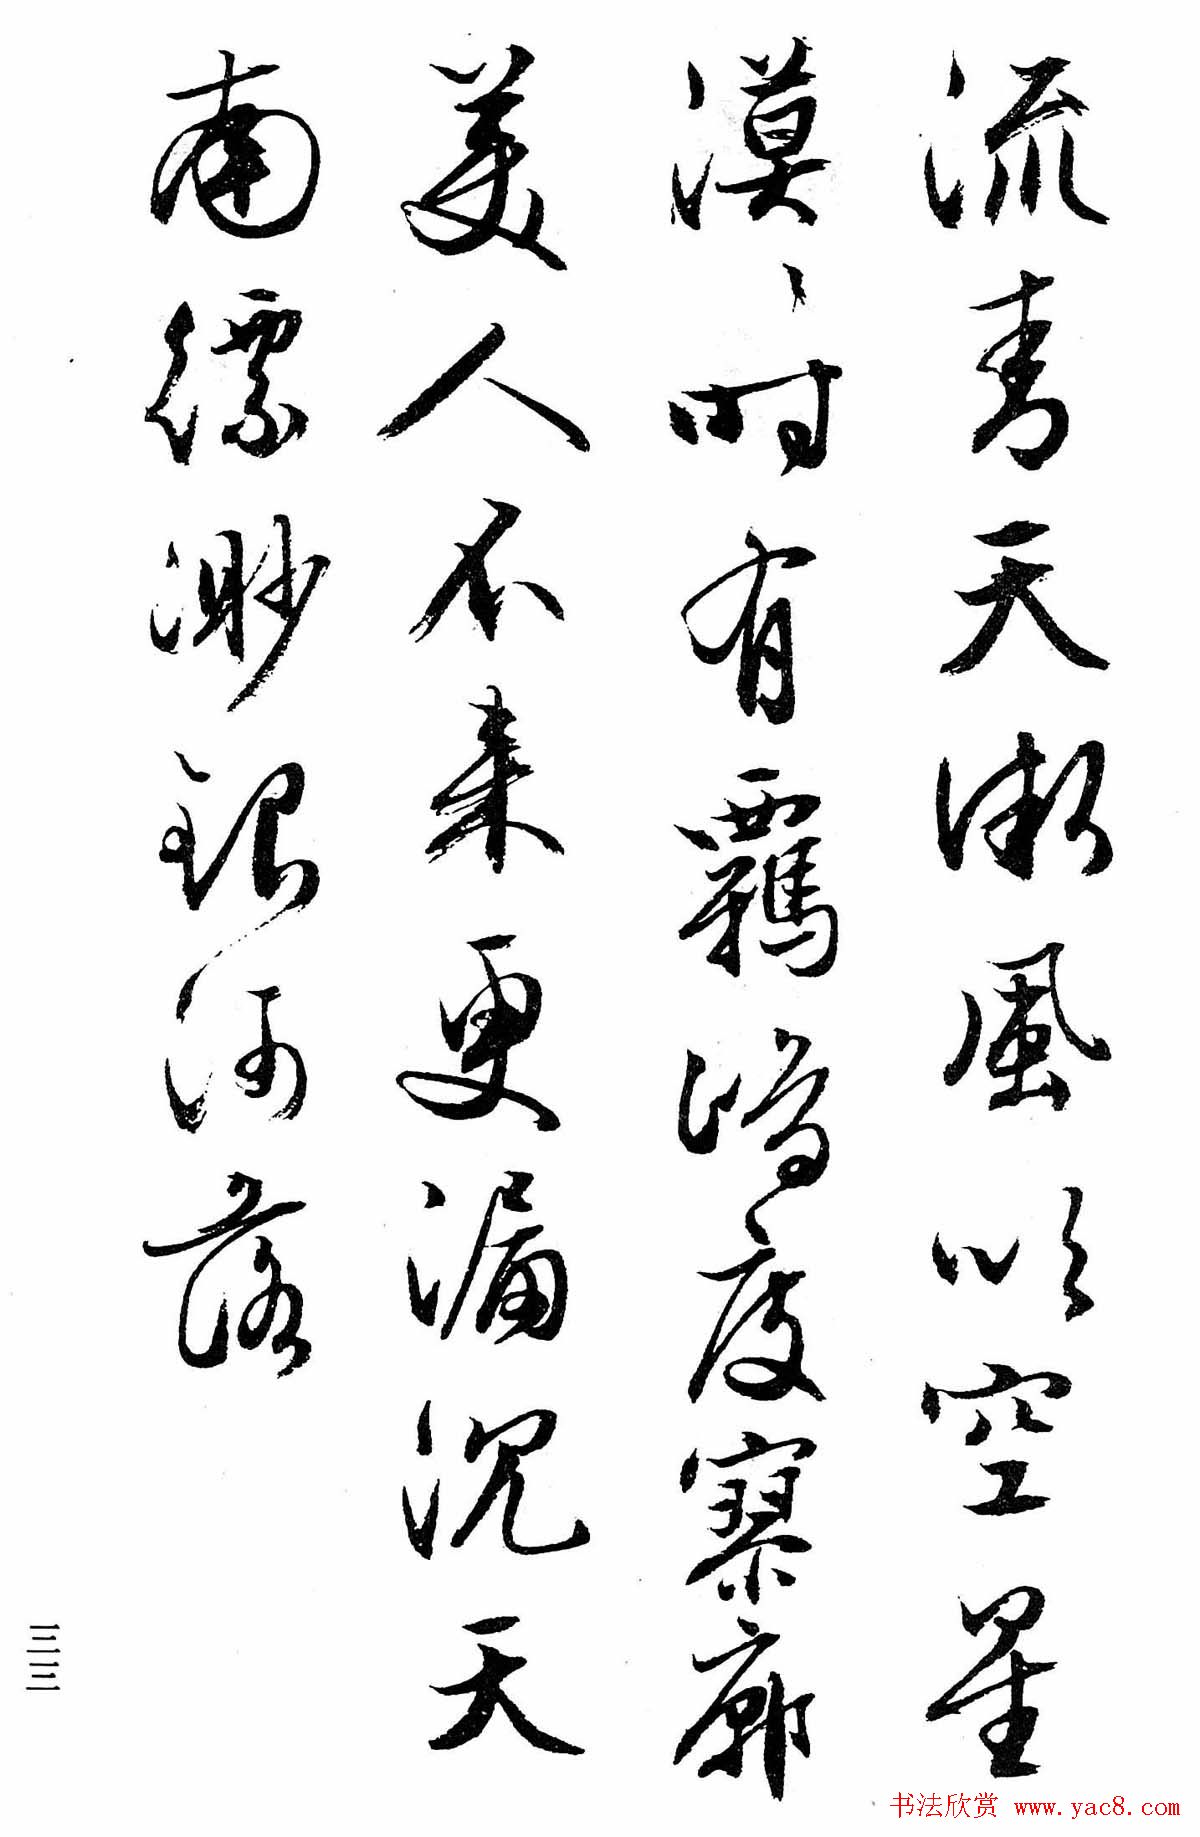 流青天微風吹空星
漠〻時有羈鴻度寥廓
美人不来更漏沉天
南縹渺銀河落
三三
书法欣赏 www.yac8.com